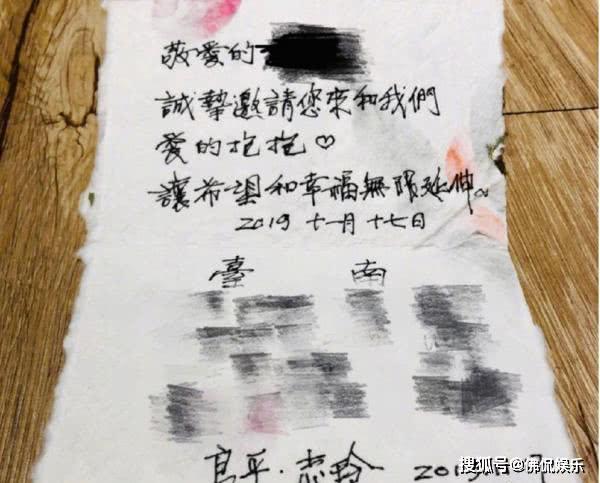 敬愛的
誠摯邀請您來和我們
愛的抱抱♡
讓希望和幸福無限延伸。
2019 十一月 十七日
臺 南
良平·志玲 2019.11
搜狐号@佛侃娱乐